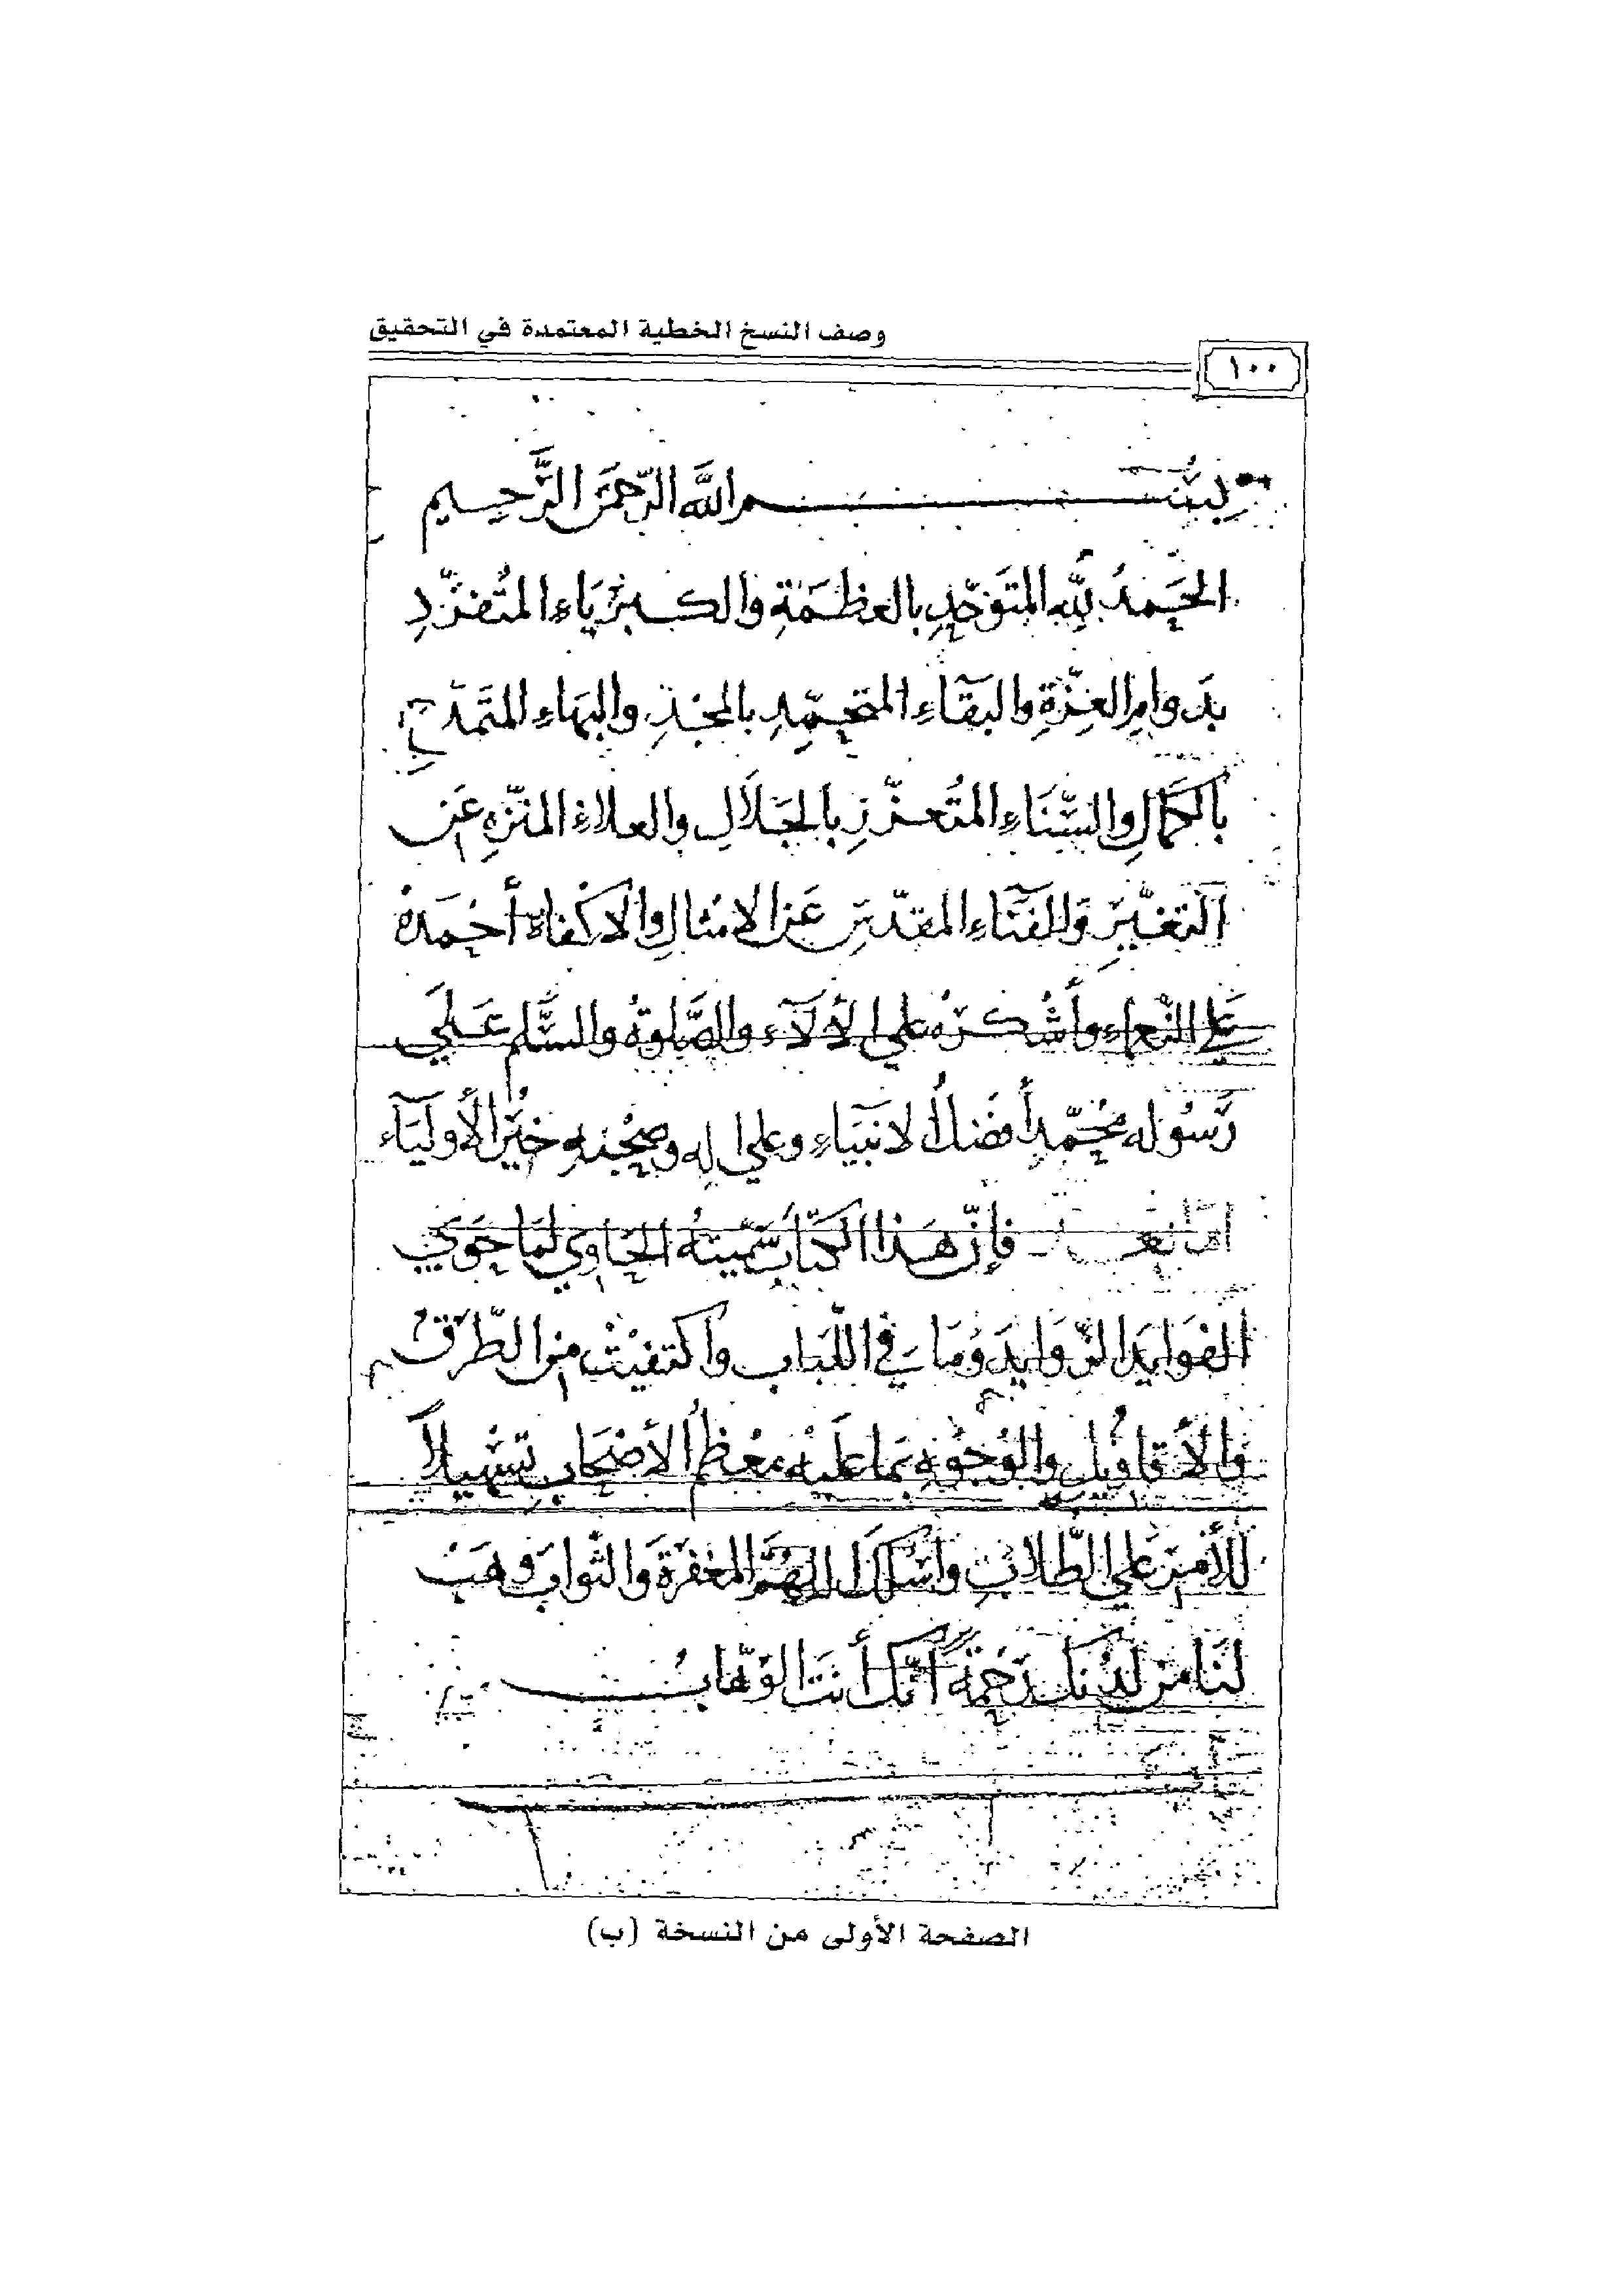 وصف النسخ الخطية المعتمدة في التحقيق
١٠٠
بسم الله الرحمن الرحيم
الحَمدُ لِلّهِ المتَوَحّدِ بالعظَمَةِ والكبرِيَاءِ المتُفَرّدِ
بدَوامِ العِزّةِ والبَقَآءِ المتحمّدِ بالمجْدِ والبَهَاءِ المتمَدّحِ
بالكَمَالِ والسَّنَاءِ المتُعزّزِ بالجَلَالِ والعلاءِ المنزّهِ عَن
التغيّرِ وَالفَنَآءِ المقدّسِ عَن الامثالِ والاكفاءِ أحْمَدهُ
عَلي النَّعماءِ وأشُكرهُ علي الألآء والصَّلوةُ والسَّلم عَلَي
رَسُولِه محُمّدٍ أفضَلُ الانبَيآءِ وعلي الِه وصَحُبهِ خيْر الأوليَآء
امّا بَعد فإنّ هَذا الكتابَ سَمّيتهُ الحَاوِي لمَا حَوي
الفوَايدَ الزّوايدَ وَمَا في اللّبَاب واكتفيْتُ مِن الطّرُق
وَالأقاويلِ وَالوُجُوهِ بمَا عَليْه معُظم الأصْحَابِ تسْهِيلاً
للأمْرِ عَلي الطّلابِ وَاسْئلكَ اللهُمَّ المغفرَةَ وَالثّوابَ وهَبْ
لنَا منْ لدُنكَ رَحْمةً انّكَ أنتَ الوَهّابُ
الصفحة الأولى من النسخة (ب)